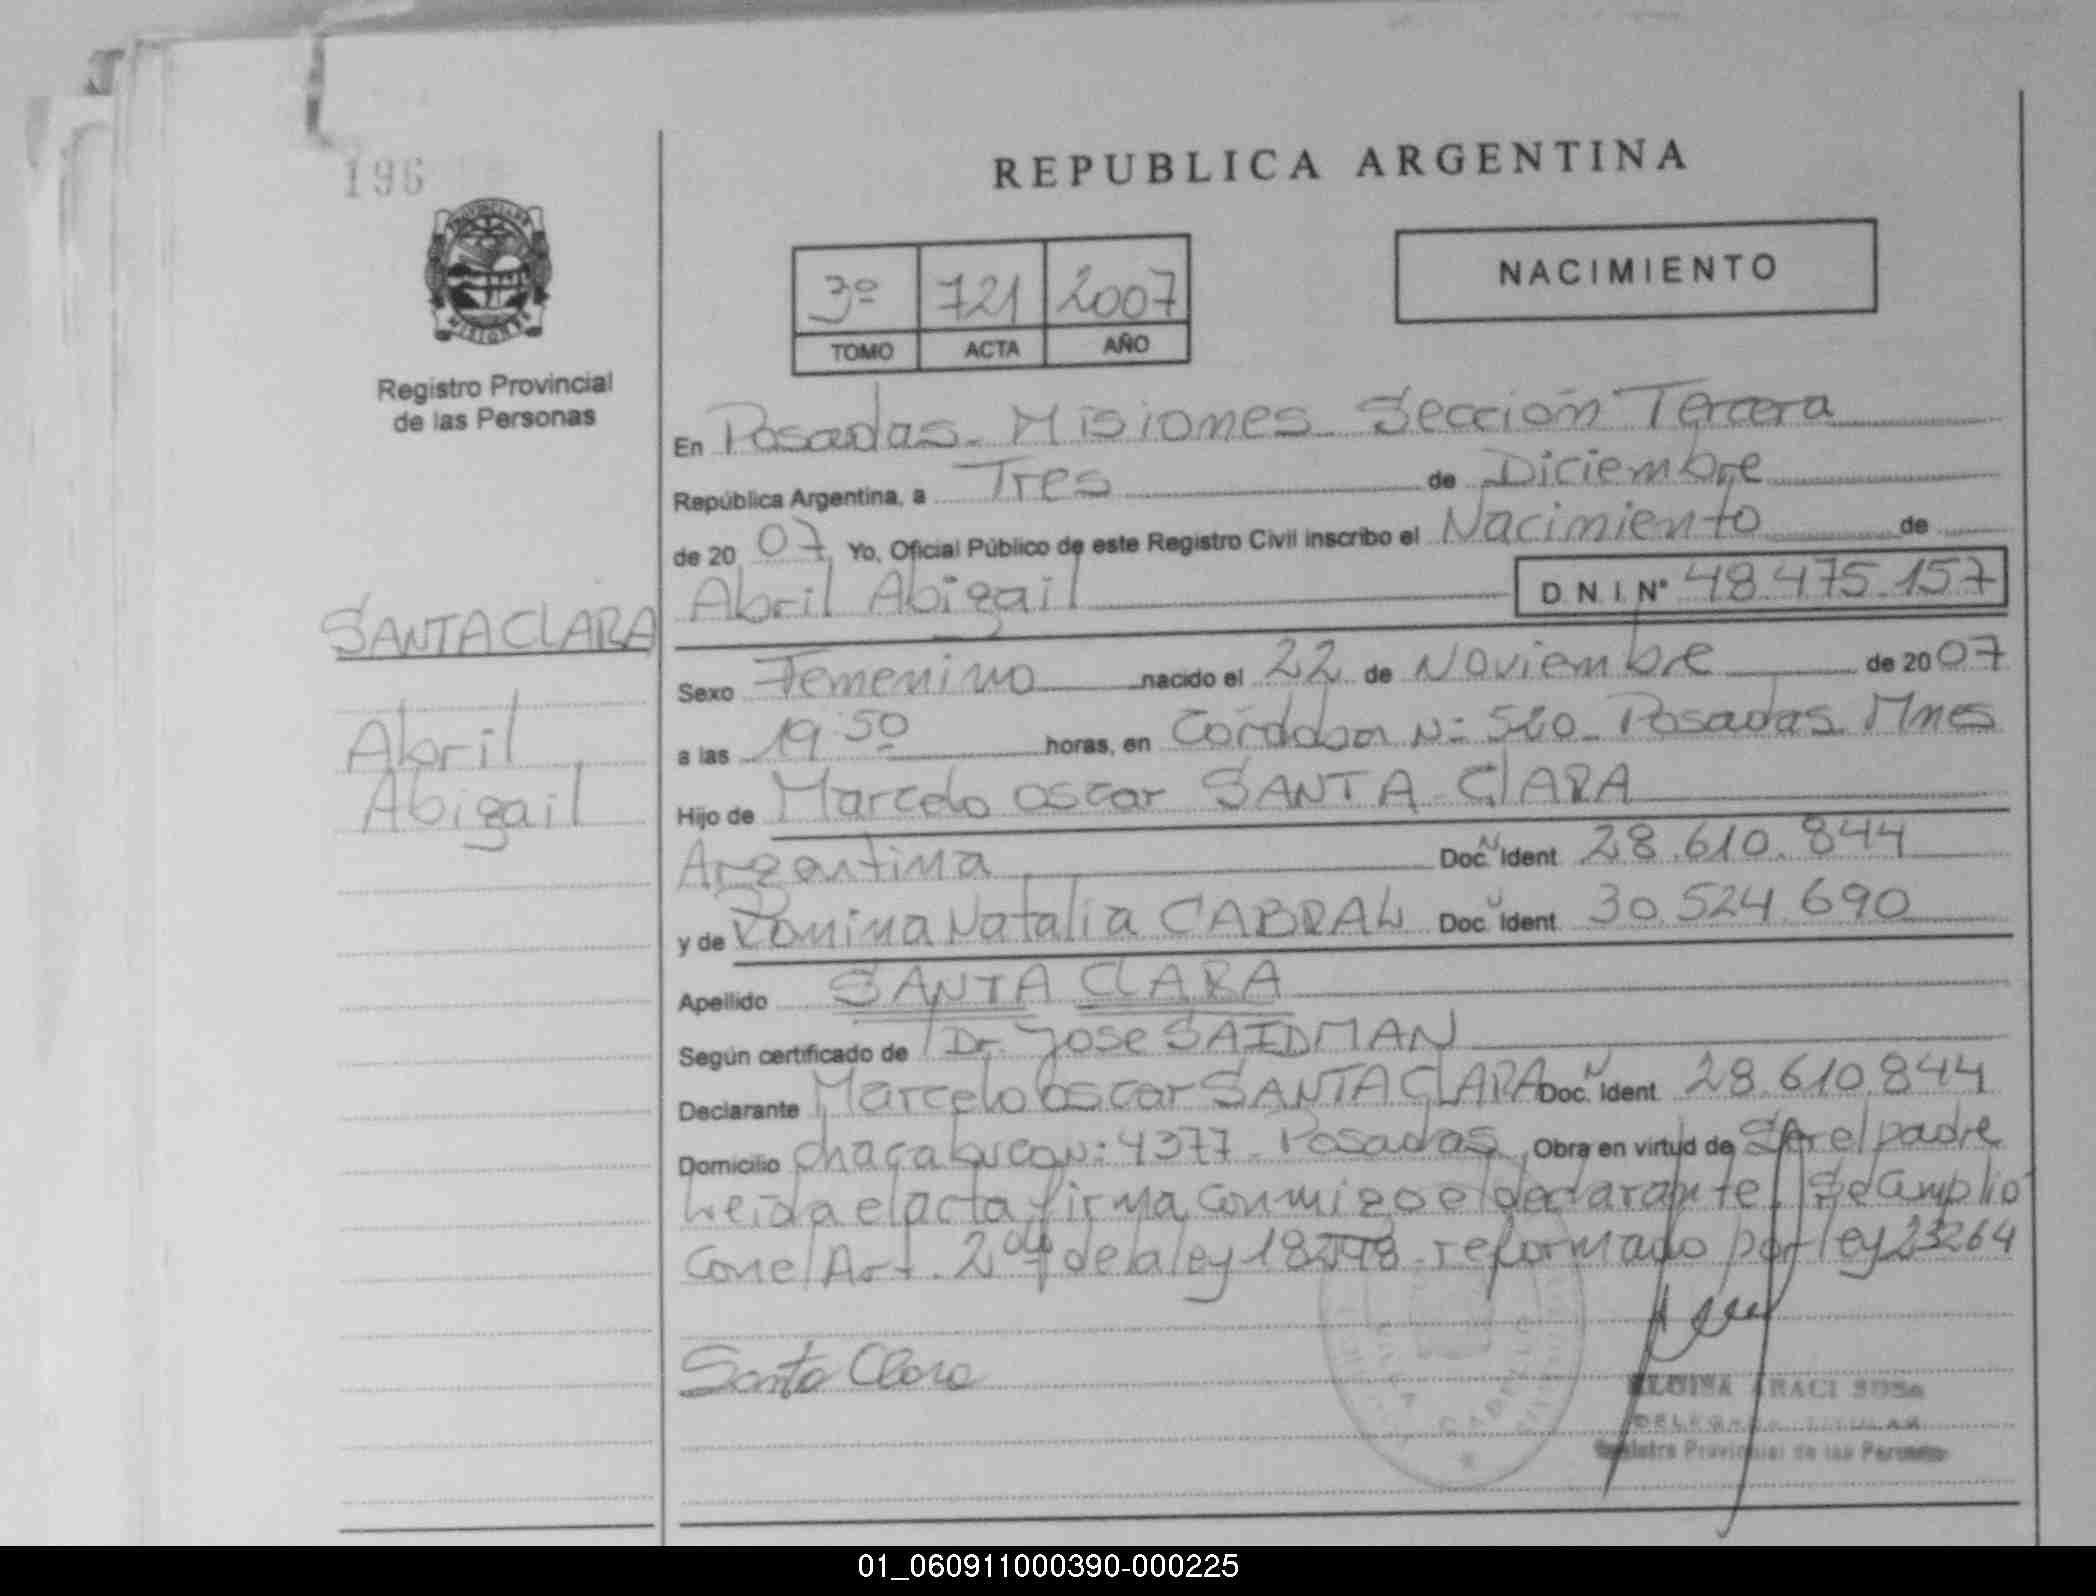 196
REPUBLICA ARGENTINA
PROVINCIA DE
MISIONES
Registro Provincial
de las Personas
3º 721 2007
TOMO ACTA AÑO
NACIMIENTO
En Posadas - Misiones - Sección Tercera
República Argentina, a Tres de Diciembre
de 20 07 Yo, Oficial Público de este Registro Civil inscribo el Nacimiento de
Abril Abigail D.N.I. Nº 48.475.157
SANTA CLARA
Abril
Abigail
Sexo Femenino nacido el 22 de Noviembre de 2007
a las 19:50 horas, en Córdoba N: Posadas Mnes
Hijo de Marcelo Oscar SANTA CLARA
Argentina Doc. Ident 28.610.844
y de Romina Natalia CABRAL Doc. Ident 30.524.690
Apellido SANTA CLARA
Según certificado de Dr. Jose SAIDMAN
Declarante Marcelo Oscar SANTA CLARA Doc. Ident. 28.610.844
Domicilio Chacabuco N: 4377 - Posadas Obra en virtud de Ser el padre
Leida el acta, firma conmigo el declarante. Se amplio
con el Art. 2º de la ley 18248 - reformado por ley 23264
Santa Clara
ELOISA ARACI SOSA
DELEGADA TITULAR
Registro Provincial de las Personas
01_060911000390-000225